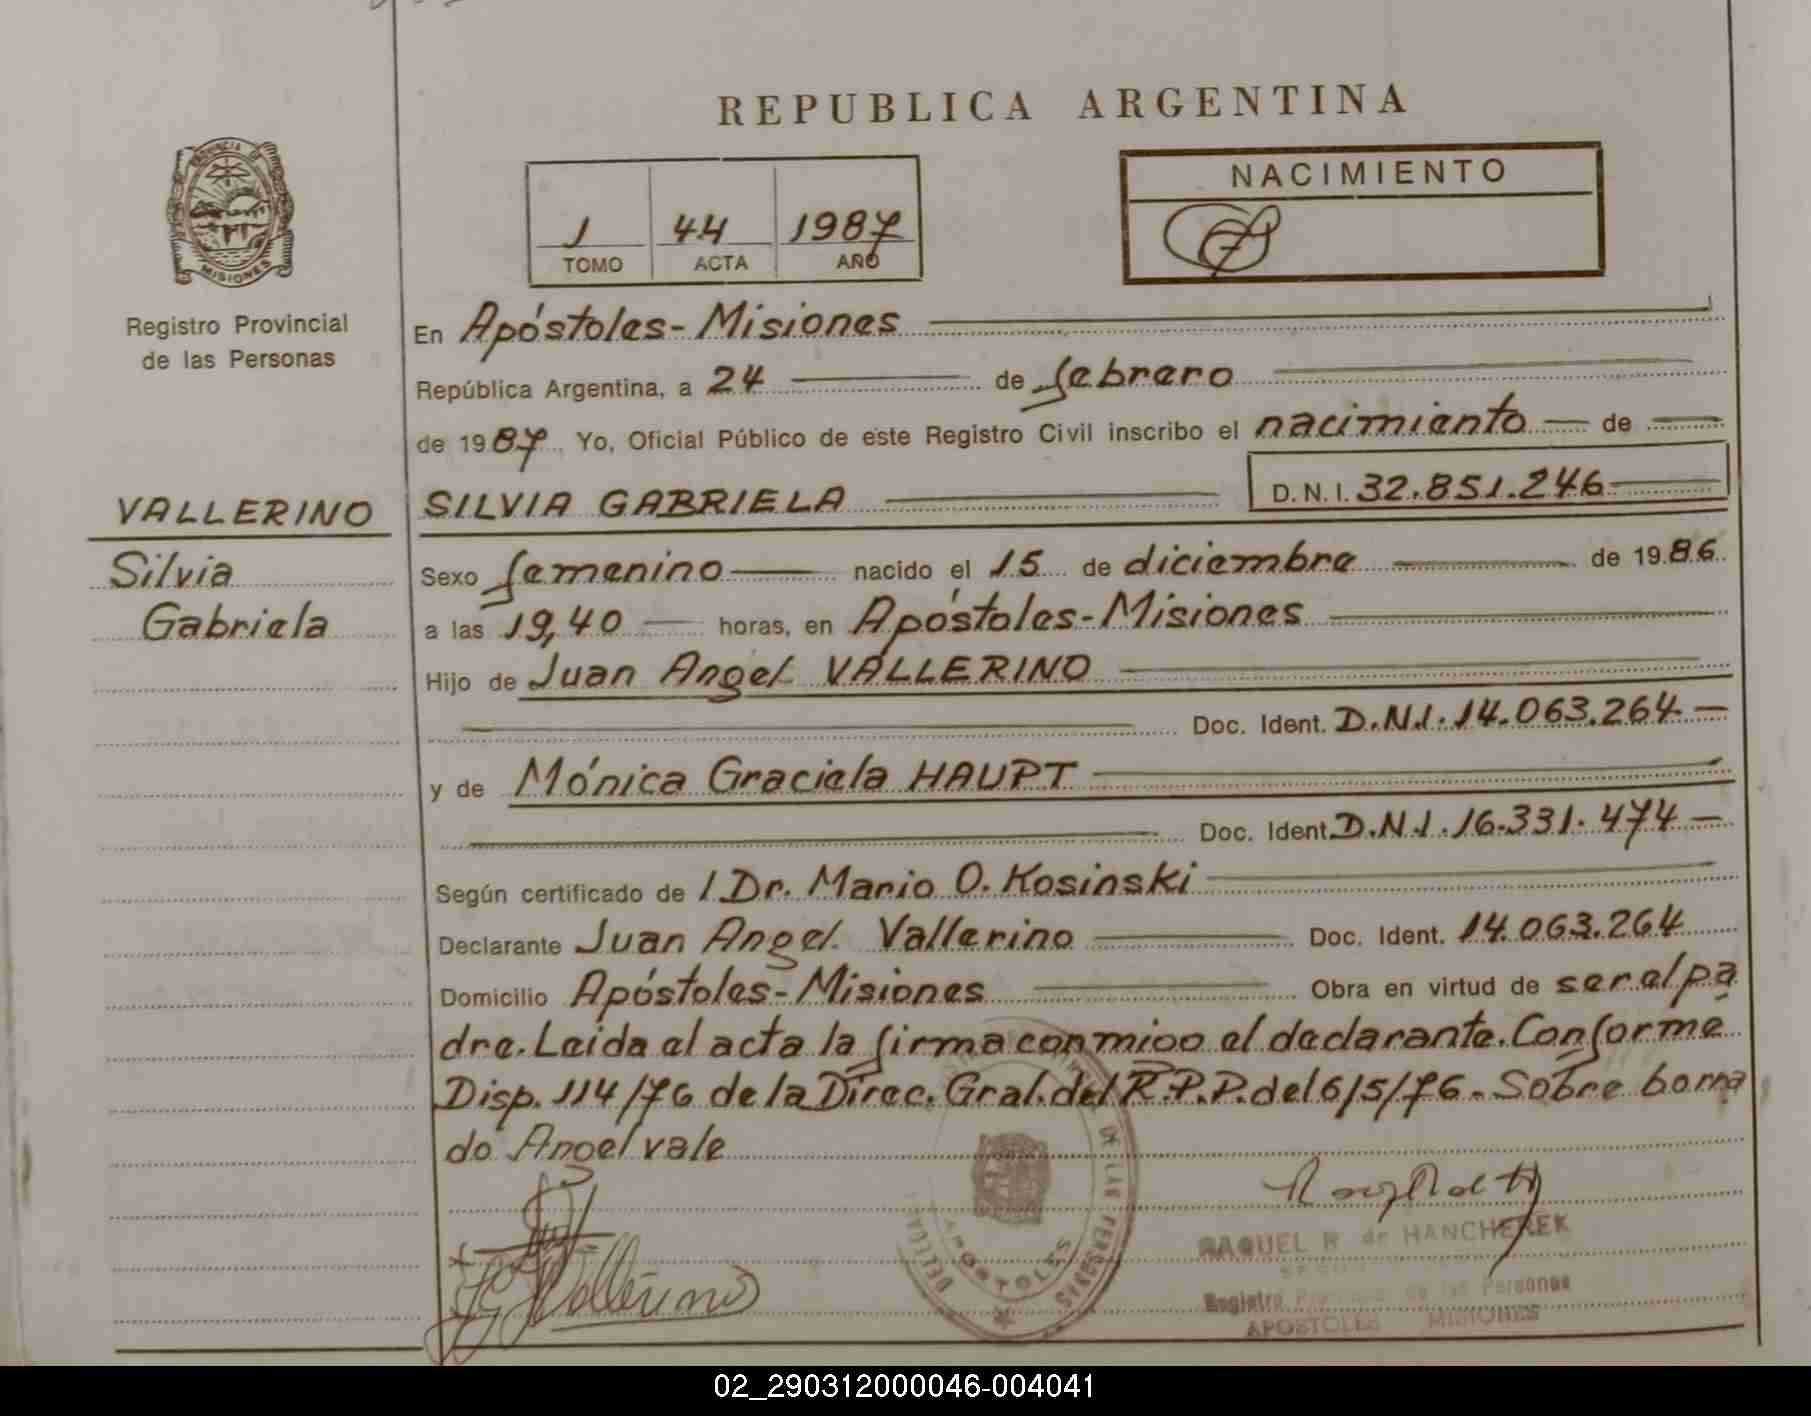 REPUBLICA ARGENTINA
PROVINCIA DE
MISIONES
Registro Provincial
de las Personas
1 44 1987
TOMO ACTA AÑO
NACIMIENTO
En Apóstoles-Misiones
República Argentina, a 24 de febrero
de 1987. Yo, Oficial Público de este Registro Civil inscribo el nacimiento de
VALLERINO
Silvia
Gabriela
SILVIA GABRIELA D.N.I. 32.851.246
Sexo femenino nacido el 15 de diciembre de 1986
a las 19,40 horas, en Apóstoles-Misiones
Hijo de Juan Angel VALLERINO
Doc. Ident. D.N.I. 14.063.264
y de Mónica Graciela HAUPT
Doc. Ident. D.N.I. 16.331.474
Según certificado de 1 Dr. Mario O. Kosinski
Declarante Juan Angel Vallerino Doc. Ident. 14.063.264
Domicilio Apóstoles-Misiones Obra en virtud de ser el pa
dre. Leida el acta la firma conmigo el declarante. Conforme
Disp. 114/76 de la Direc. Gral. del R.P.P. del 6/5/76. Sobre borra
do Angel vale
DE LAS PERSONAS
APOSTOLES
Vallerino
RAQUEL R de HANCHEREK
Registro Provincial de las Personas
APOSTOLES MISIONES
02_290312000046-004041